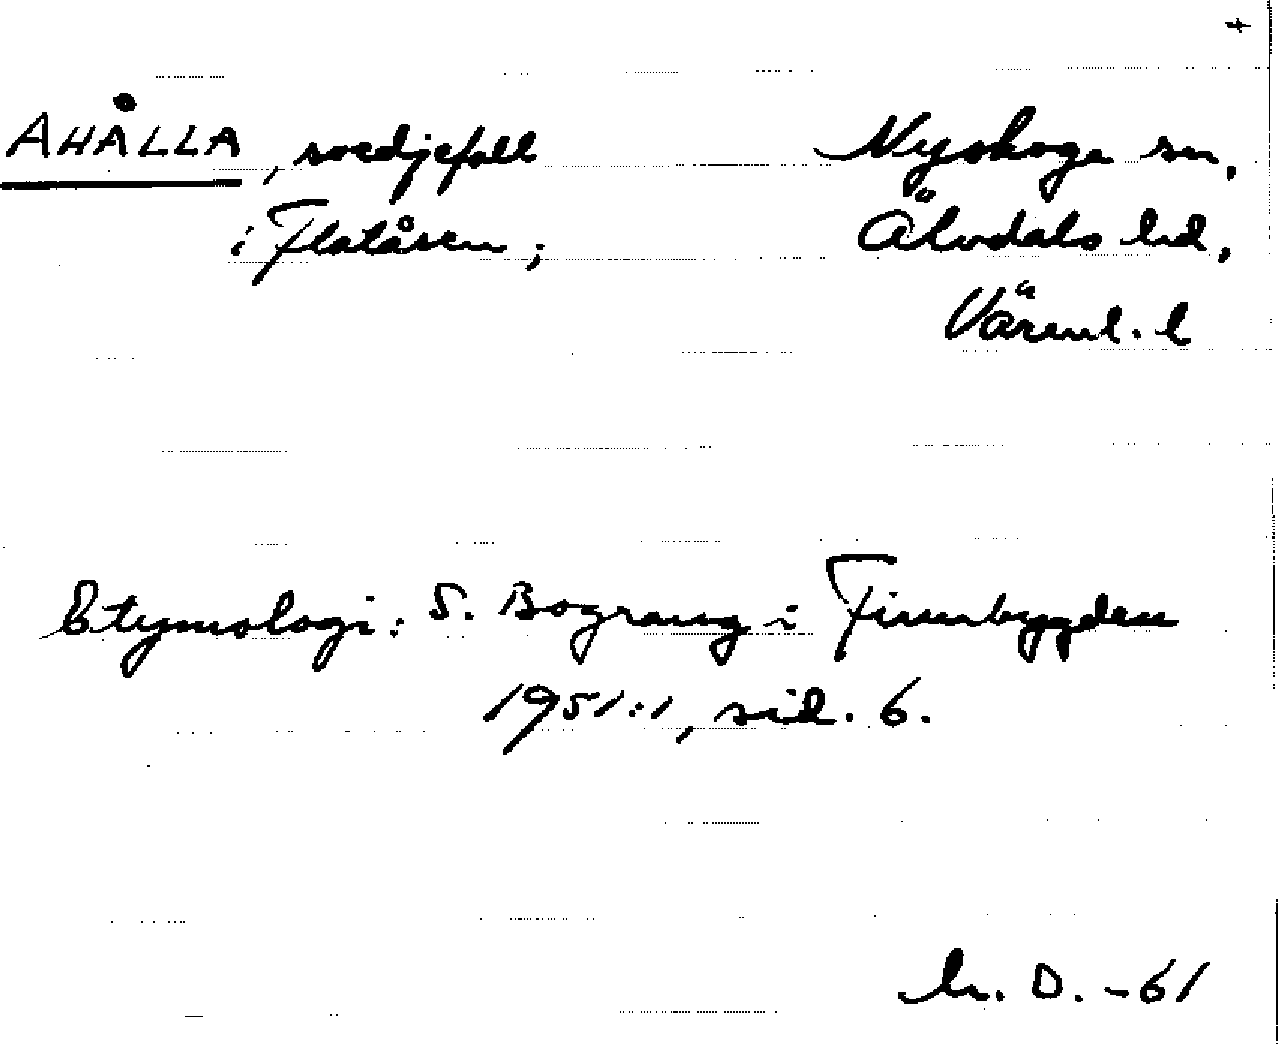 +
AHÅLLA, svedjefall Nyskoga sn,
i Flatåsen; Älvdals hd,
Värml. l
Etymologi: S. Bograng i Finnbygden
1951:1, sid. 6.
h. D. -61